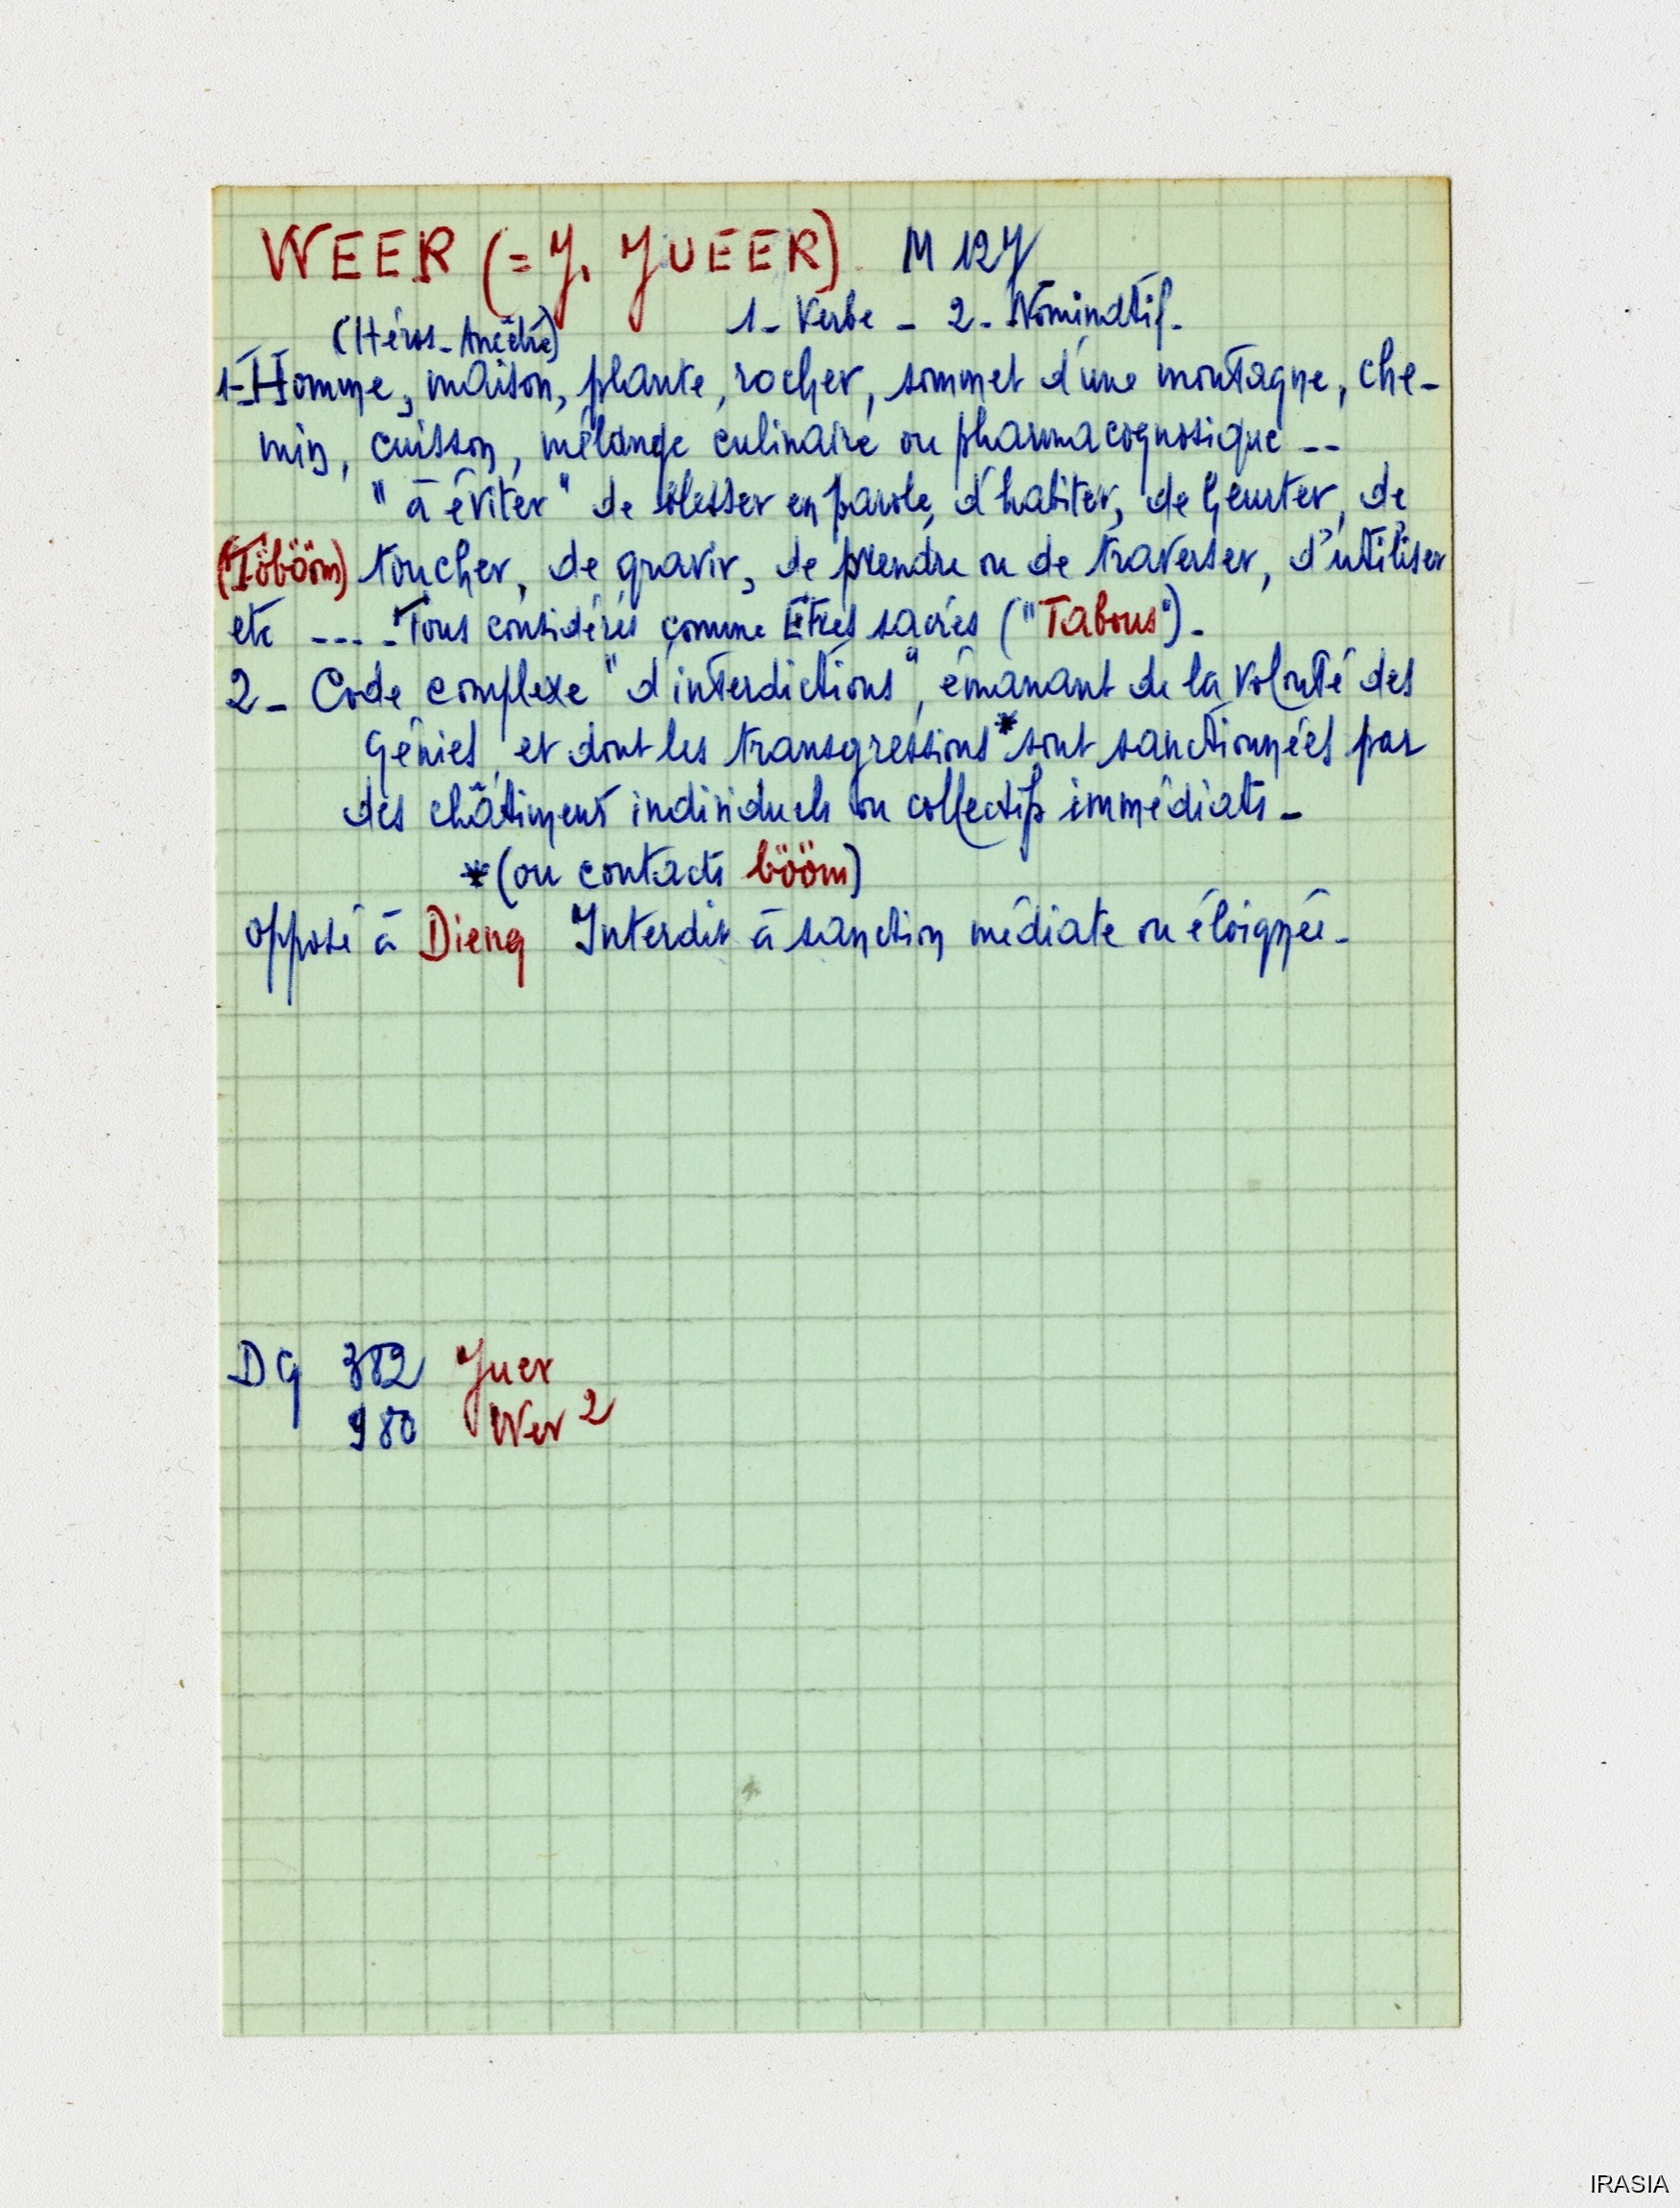 WEER (= J. JUEER). M 127
1- Verbe - 2- Nominatif.
(Héros-Ancêtre)
1- Homme, maison, plante, rocher, sommet d'une montagne, che-
min, cuisson, mélange culinaire ou pharmacognosique --
"à éviter" de blesser en parole, d'habiter, de heurter, de
(Töbööm) toucher, de gravir, de prendre ou de traverser, d'utiliser
etc ---- Tous considérés comme Etres sacrés ("Tabous").
2- Code complexe "d'interdictions", émanant de la volonté des
Génies, et dont les transgressions * sont sanctionnées par
des châtiments individuels ou collectifs immédiats -
* (ou contacts bööm)
opposé à Dieng Interdit à sanction médiate ou éloignée -
DG 382 Juer
980 Wer 2
IRASIA